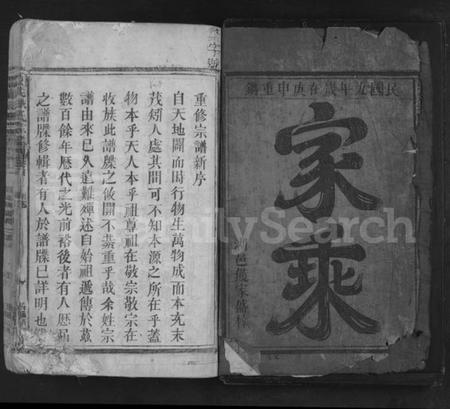 民國九年歲在庚申重鐫
家乘
重修宗譜新序
自天地闢而四行物生萬物成而本支末
茂矧人處其間可不知本源之所在乎蓋
物本乎天人本乎祖尊祖在敬宗敬宗在
收族此譜牒之攸關不綦重乎哉余姓宗
譜由來已久追難殫述自始祖遞傳於茲
數百餘年歷代之光前裕後者有人歷屆
之譜牒修輯者有人於譜牒已詳明也
FamilySearch